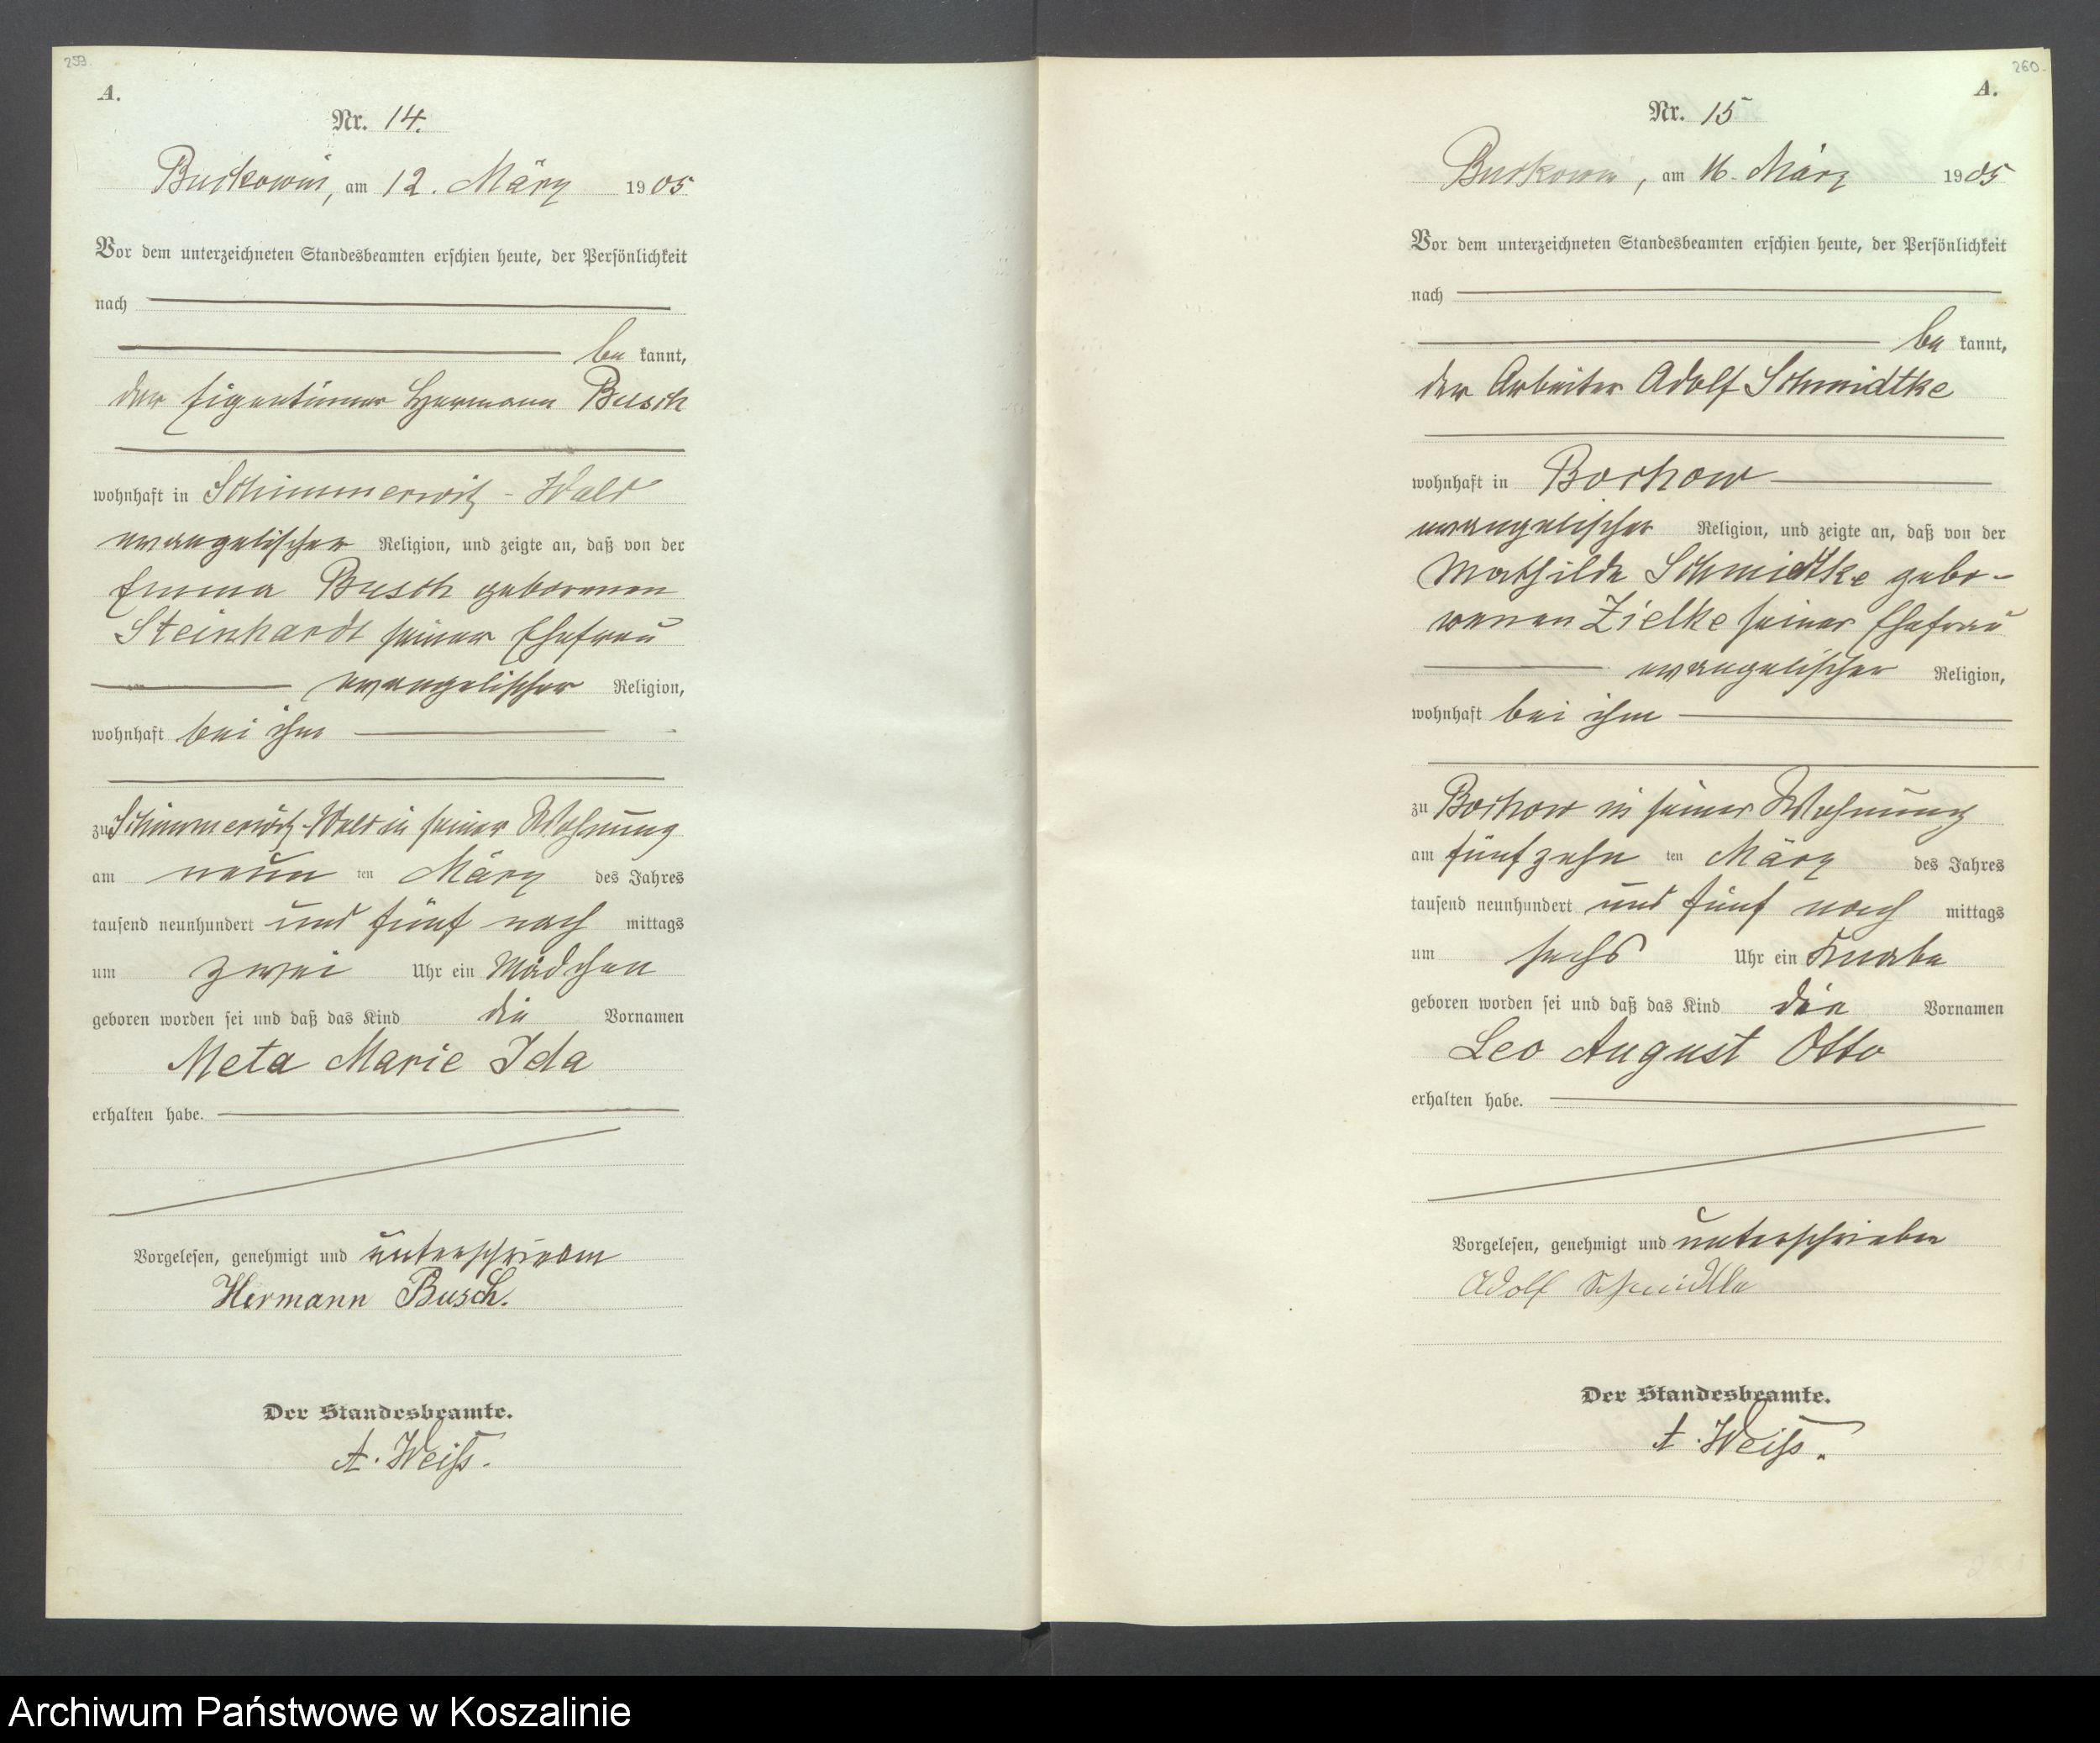 259
A.
Nr. 14.
Buckowin, am 12. März 1905
Vor dem unterzeichneten Standesbeamten erschien heute, der Persönlichkeit
nach
be kannt,
der Eigentümer Hermann Busch
wohnhaft in Schimmerwitz-Wald
evangelischer Religion, und zeigte an, daß von der
Emma Busch geborenen
Steinhardt seiner Ehefrau
evangelischer Religion,
wohnhaft bei ihm
zu Schimmerwitz-Wald in seiner Wohnung
am neun ten März des Jahres
tausend neunhundert und fünf nach mittags
um zwei Uhr ein Mädchen
geboren worden sei und daß das Kind die Vornamen
Meta Marie Ida
erhalten habe.
Vorgelesen, genehmigt und unterschrieben
Hermann Busch.
Der Standesbeamte.
A. Weiß.
260
A.
Nr. 15
Buckowin, am 16. März 1905
Vor dem unterzeichneten Standesbeamten erschien heute, der Persönlichkeit
nach
be kannt,
der Arbeiter Adolf Schmidtke
wohnhaft in Bochow
evangelischer Religion, und zeigte an, daß von der
Mathilde Schmidtke gebo-
renen Zielke seiner Ehefrau
evangelischer Religion,
wohnhaft bei ihm
zu Bochow in seiner Wohnung
am fünfzehn ten März des Jahres
tausend neunhundert und fünf nach mittags
um sechs Uhr ein Knabe
geboren worden sei und daß das Kind die Vornamen
Leo August Otto
erhalten habe.
Vorgelesen, genehmigt und unterschrieben
Adolf Schmidtke
Der Standesbeamte.
A. Weiß.
Archiwum Państwowe w Koszalinie